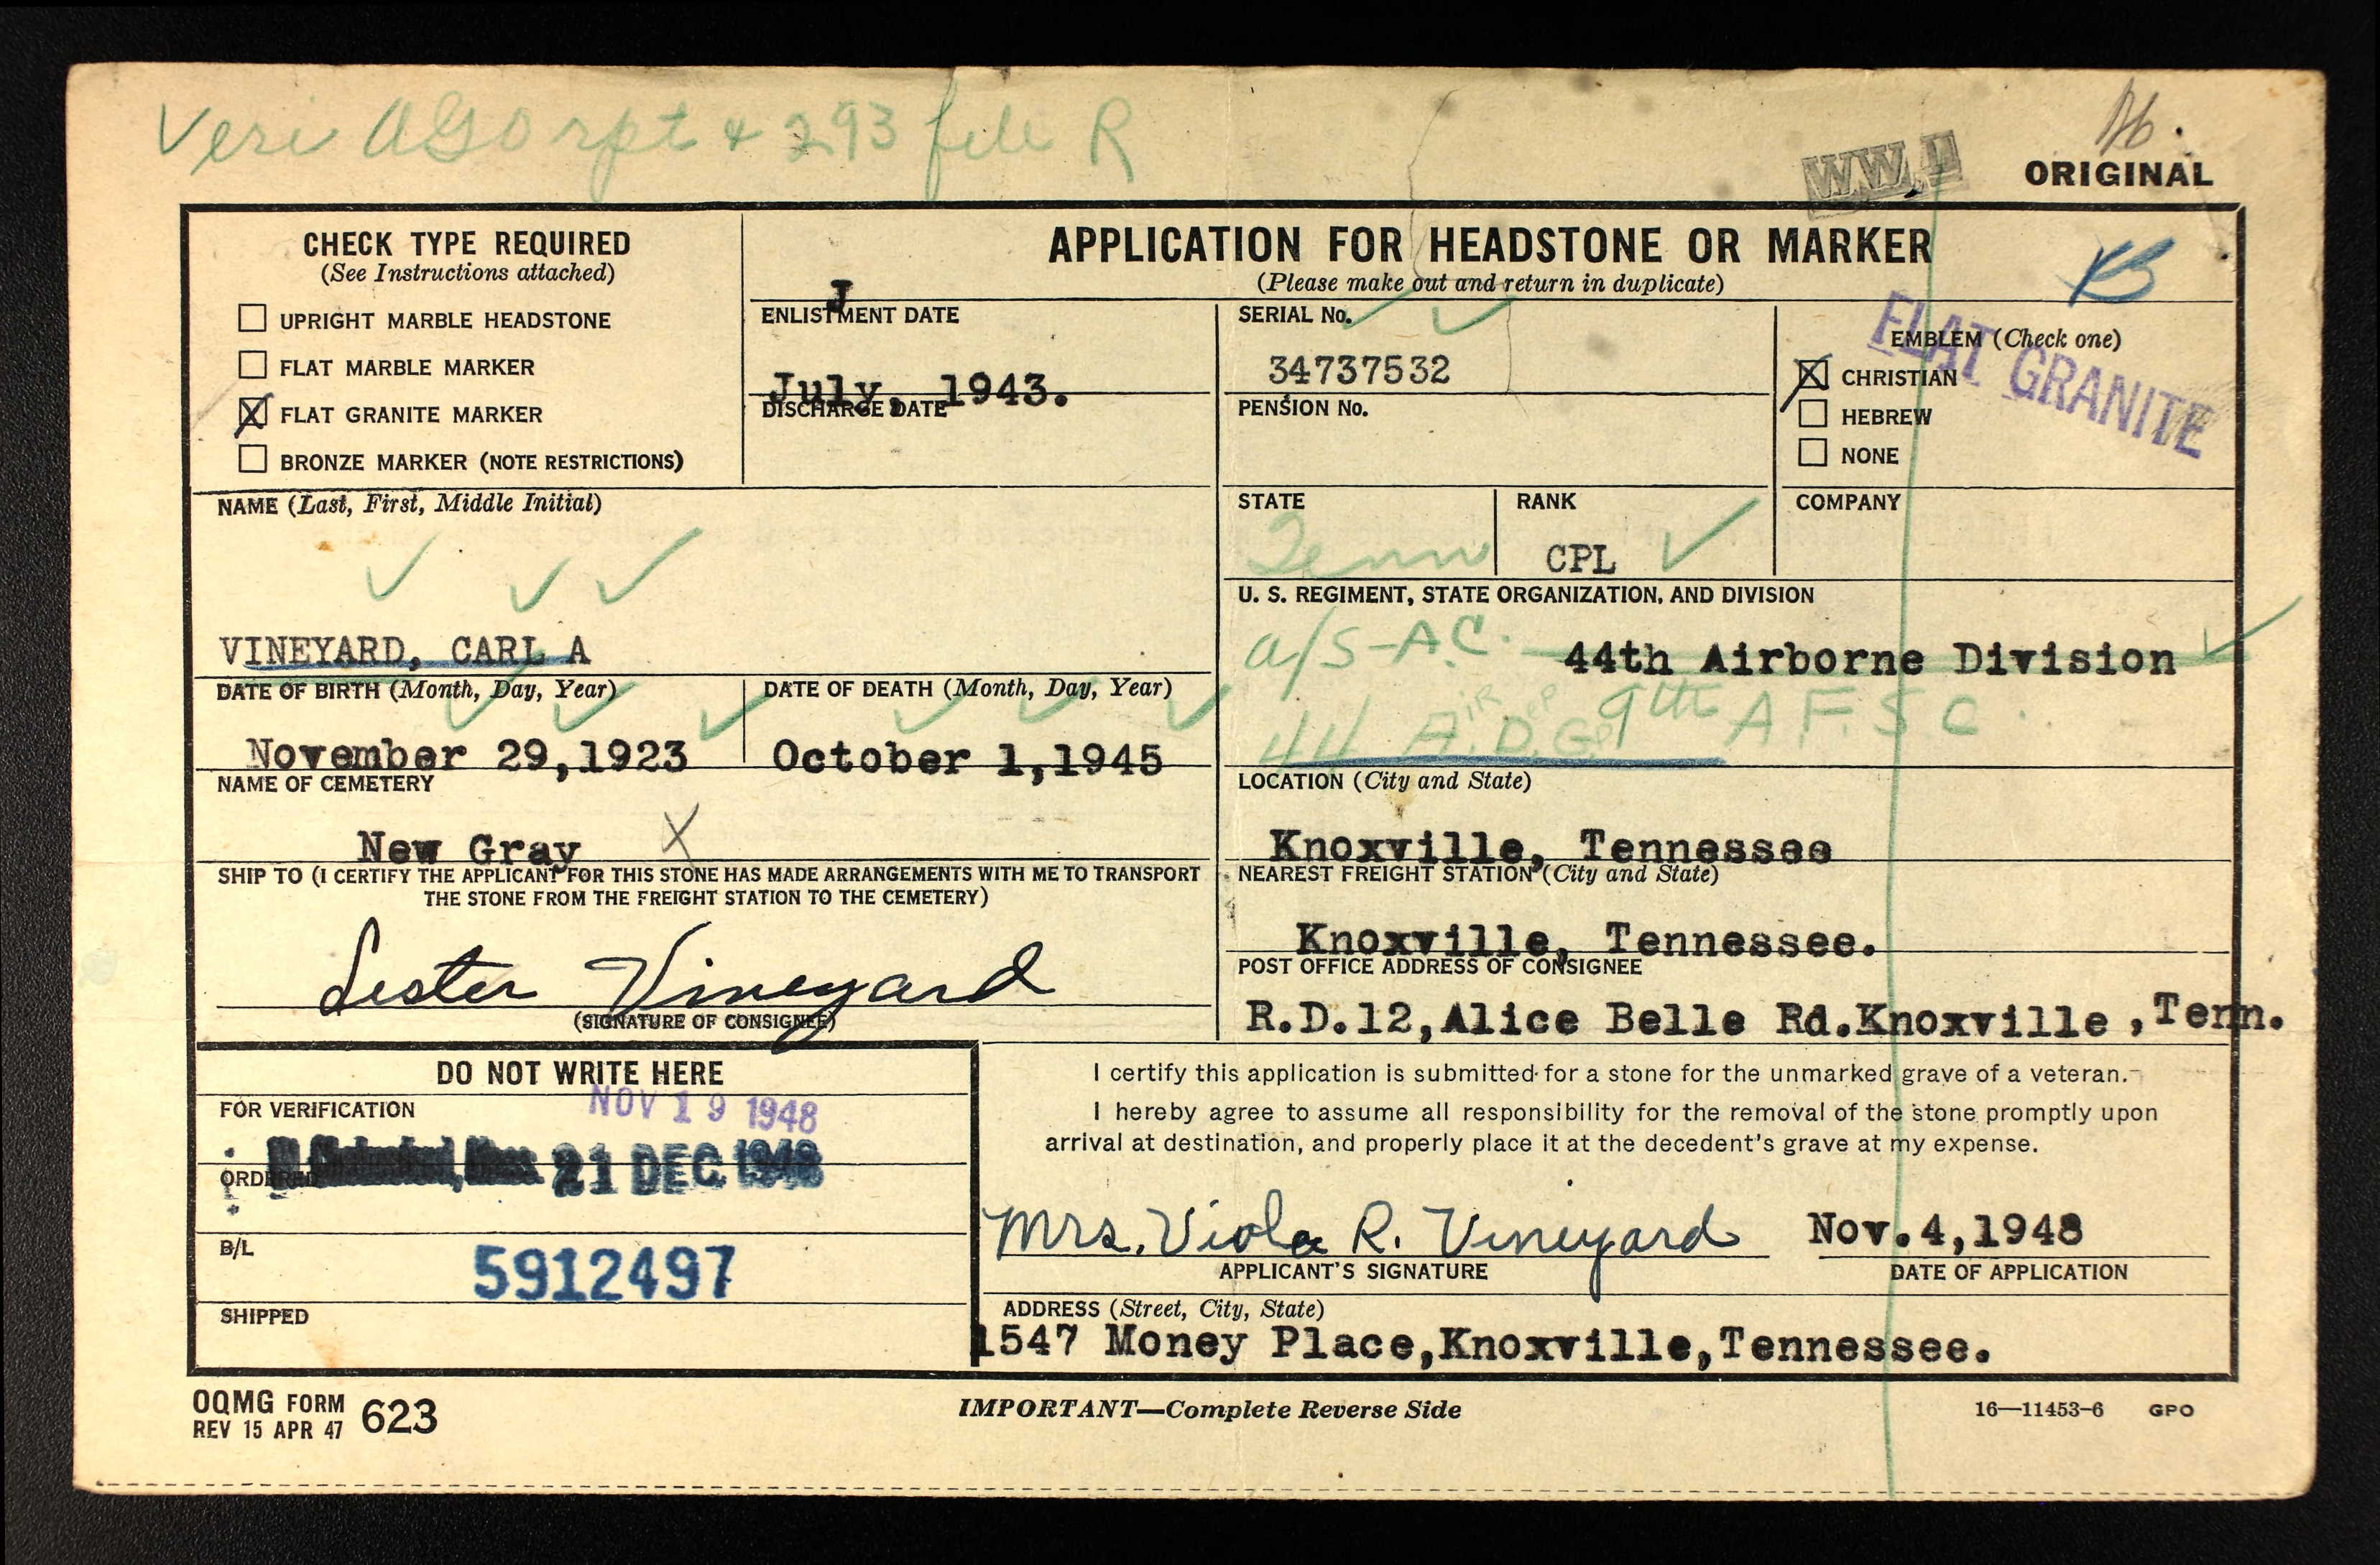 Veri AGO rpt & 293 file R
WW II
ORIGINAL
CHECK TYPE REQUIRED
(See Instructions attached)
UPRIGHT MARBLE HEADSTONE
FLAT MARBLE MARKER
X FLAT GRANITE MARKER
BRONZE MARKER (NOTE RESTRICTIONS)
APPLICATION FOR HEADSTONE OR MARKER
(Please make out and return in duplicate)
J
ENLISTMENT DATE
July, 1943.
DISCHARGE DATE
SERIAL No.
34737532
PENSION No.
EMBLEM (Check one)
X CHRISTIAN
HEBREW
NONE
FLAT GRANITE
NAME (Last, First, Middle Initial)
VINEYARD, CARL A
STATE
Tenn
RANK
CPL
COMPANY
U. S. REGIMENT, STATE ORGANIZATION, AND DIVISION
a/s-A.C. 44th Airborne Division
44 AIR DEP GP 9th A F S C.
DATE OF BIRTH (Month, Day, Year)
November 29,1923
DATE OF DEATH (Month, Day, Year)
October 1,1945
NAME OF CEMETERY
New Gray X
LOCATION (City and State)
Knoxville, Tennessee
SHIP TO (I CERTIFY THE APPLICANT FOR THIS STONE HAS MADE ARRANGEMENTS WITH ME TO TRANSPORT
THE STONE FROM THE FREIGHT STATION TO THE CEMETERY)
Lester Vineyard
(SIGNATURE OF CONSIGNEE)
NEAREST FREIGHT STATION (City and State)
Knoxville, Tennessee.
POST OFFICE ADDRESS OF CONSIGNEE
R.D.12,Alice Belle Rd.Knoxville,Tenn.
DO NOT WRITE HERE
FOR VERIFICATION
NOV 19 1948
ORDERED
21 DEC 1948
B/L
5912497
SHIPPED
I certify this application is submitted for a stone for the unmarked grave of a veteran.
I hereby agree to assume all responsibility for the removal of the stone promptly upon
arrival at destination, and properly place it at the decedent's grave at my expense.
Mrs. Viola R. Vineyard
APPLICANT'S SIGNATURE
Nov.4,1948
DATE OF APPLICATION
ADDRESS (Street, City, State)
1547 Money Place,Knoxville,Tennessee.
OQMG FORM 623
REV 15 APR 47
IMPORTANT—Complete Reverse Side
16—11453-6 GPO